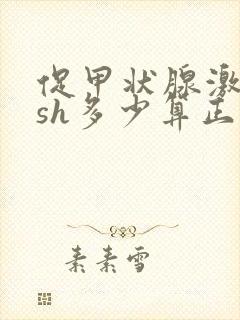 促甲状腺激
sh多少算正
素素雪